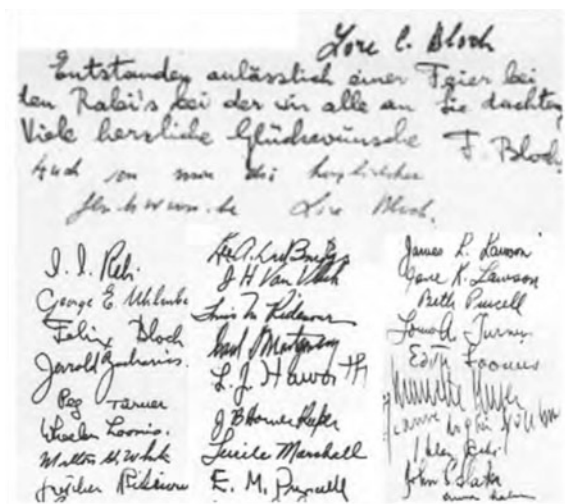 Lore C. Bloch
Entstanden anlässlich einer Feier bei
den Rabi's bei der wir alle an Sie dachten
Viele herzliche Glückwünsche F. Bloch.
Auch von mir die herzlichsten
Lore Bloch.
I. I. Rabi.
George E. Uhlenbeck
Felix Bloch
Jerrold Zacharias.
Peg Turner
Wheeler Loomis.
Milton G. White
Ridenour
Lee A. DuBridge
J H Van Vleck
Louis N. Ridenour
Carol Montgomery
L. J. Haworth
J B Horner Kuper
Lucile Marshall
E. M. Purcell
James L. Lawson
Jane K. Lawson
Beth Purcell
Louis A. Turner
Edith Loomis
Kuper
Helen Rabi
John C. Slater